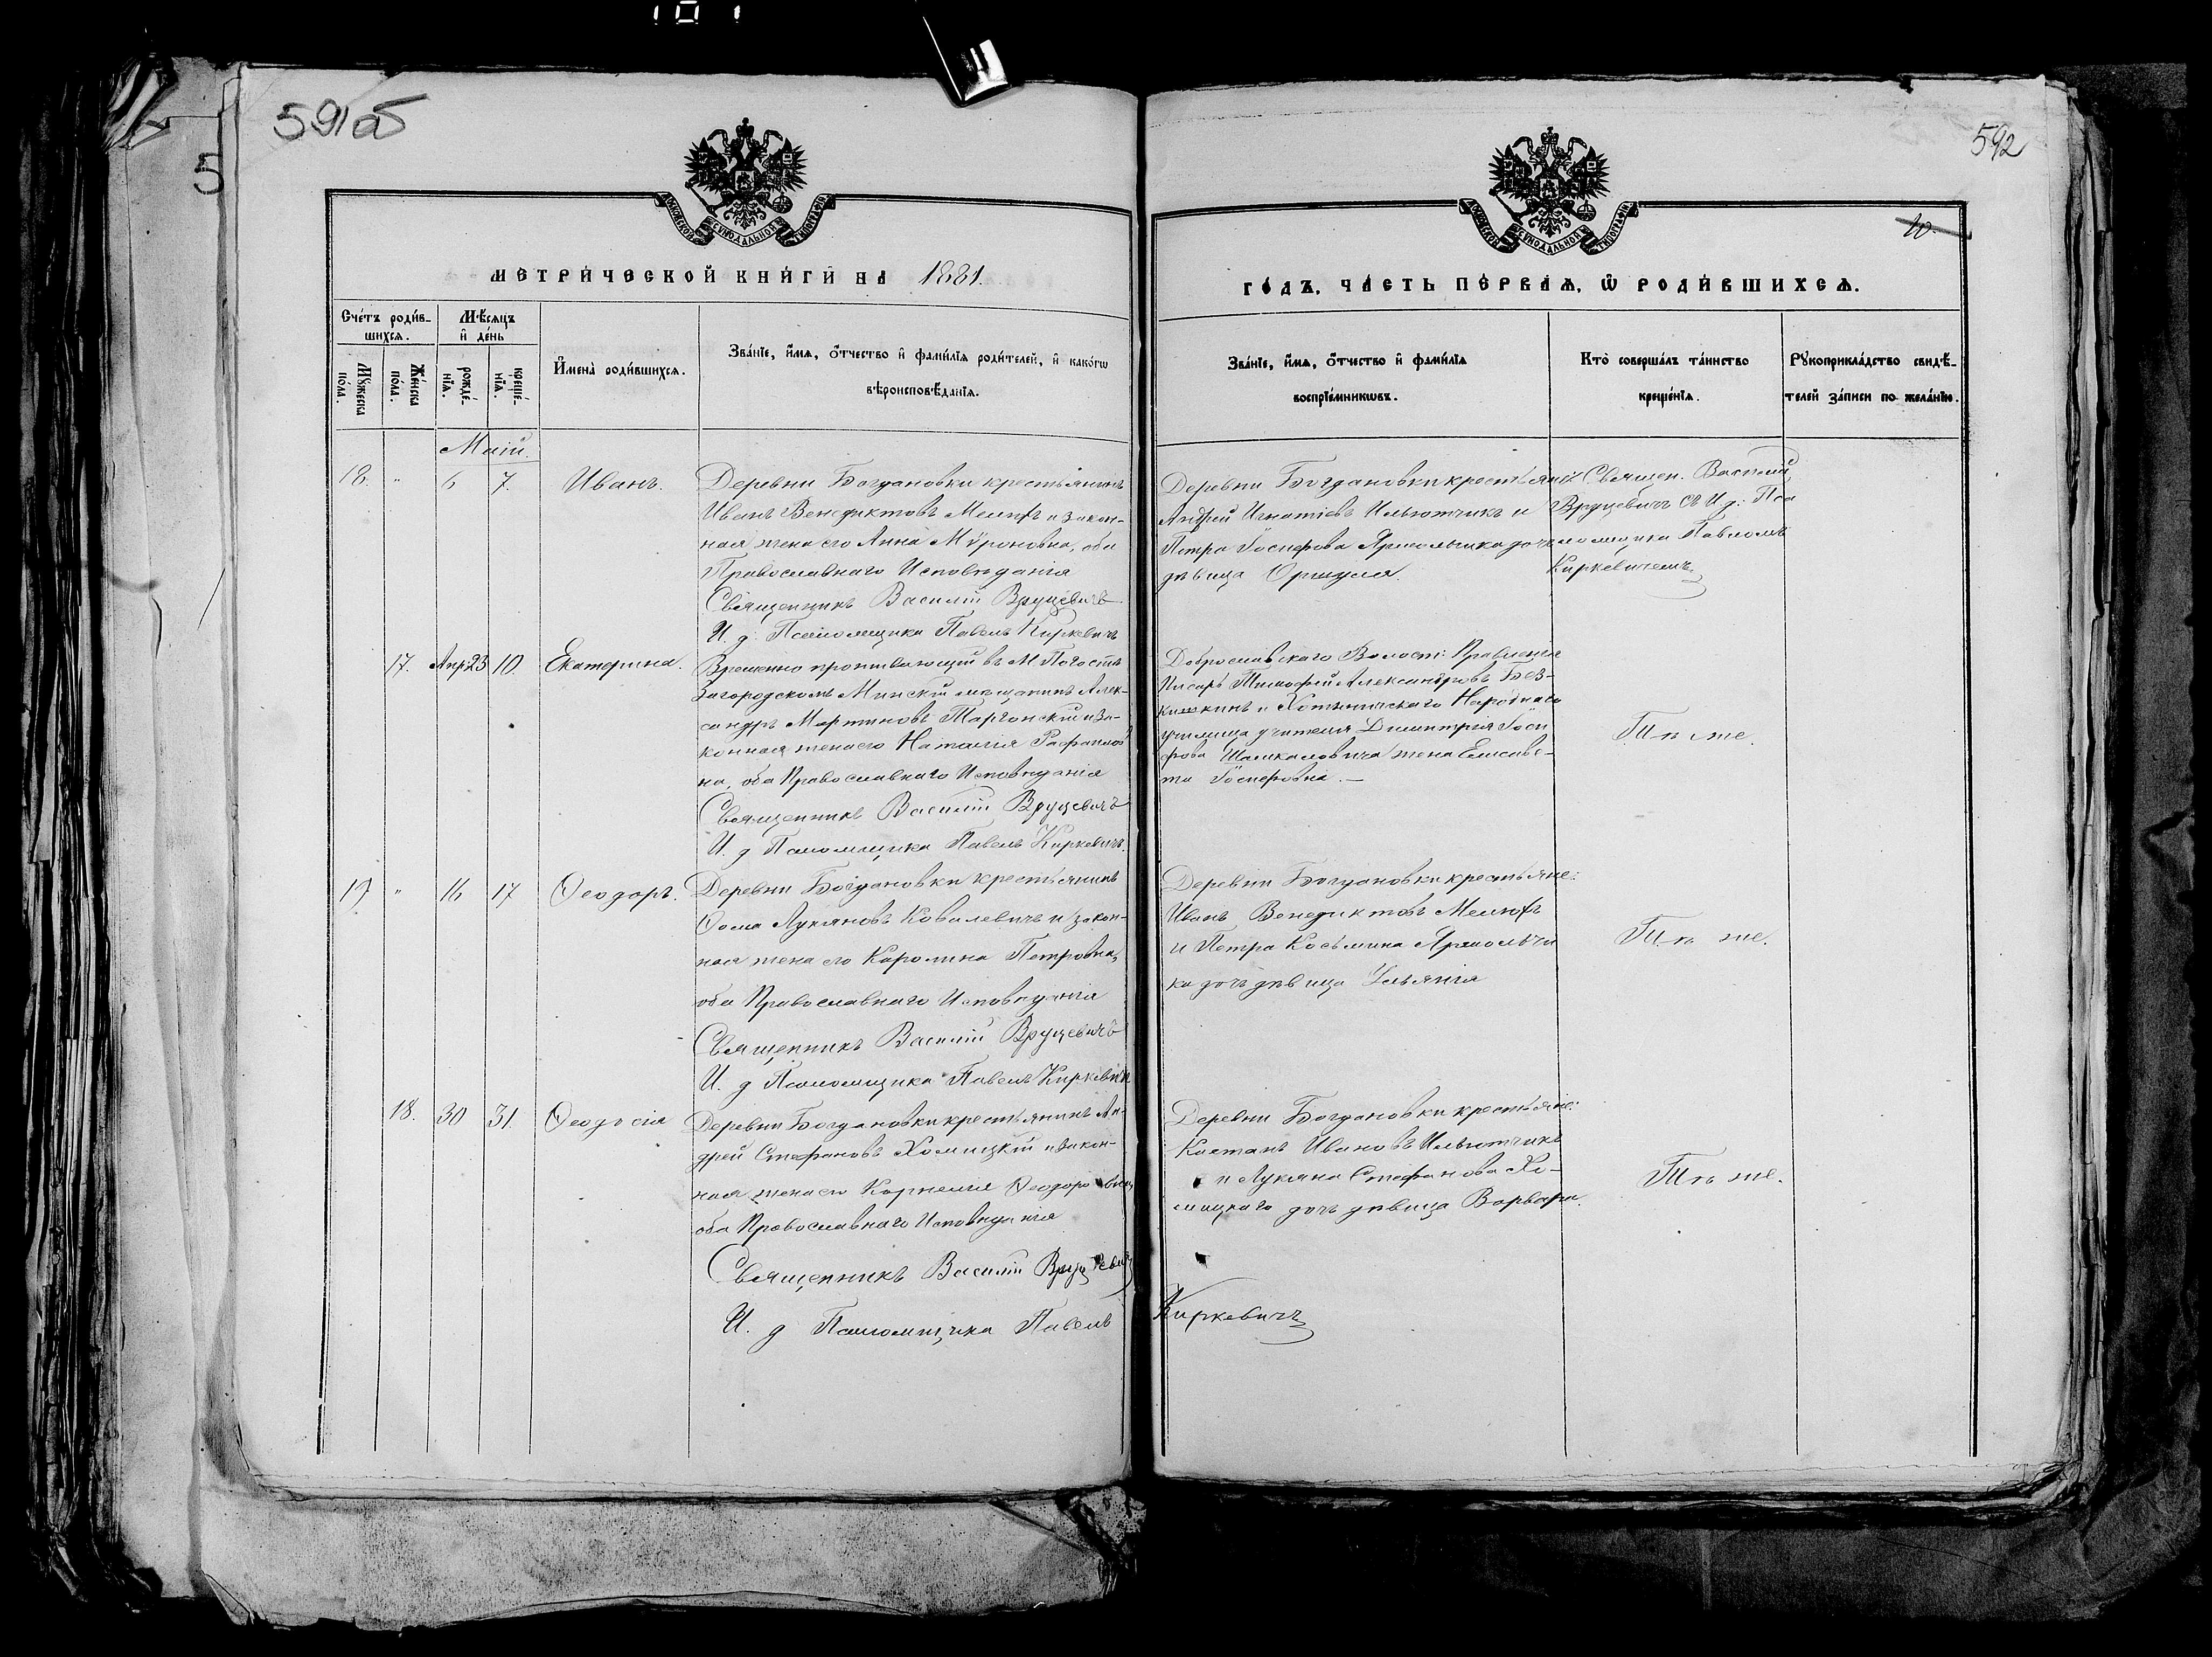 591об
592
10.
МЕТРИЧЕСКОЙ КНИГИ НА 1881.
ГОДЪ, ЧАСТЬ ПЕРВАЯ, Ѡ РОДИВШИХСЯ.
МОСКОВСКОЙ СУНОДАЛЬНОЙ ТИПОГРАФІИ
МОСКОВСКОЙ СУНОДАЛЬНОЙ ТИПОГРАФІИ
Счетъ родив-
шихся.
Мужеска пола.
Женска пола.
Мѣсяцъ и день
рожденія.
крещенія.
Имена родившихся.
Званіе, имя, отчество и фамилія родителей, и какогѡ
вѣроисповѣданія.
Званіе, имя, отчество и фамилія
воспріемникѡвъ.
Кто совершалъ таинство
крещенія.
Рукоприкладство свидѣ-
телей записи по желанію.
Маій.
18. " 6 7. Иванъ.
Деревни Богдановки крестьянинъ
Иванъ Венедиктовъ Мелюхъ и закон-
ная жена его Анна Мѵроновна, оба
Православнаго Исповѣданія
Священникъ Василій Вруцевичъ
И. д. Псаломщика Павелъ Киркевичъ
Деревни Богдановки крестьяне
Андрей Игнатіевъ Ильютчикъ и
Петра Іосифова Ярмольчика дочь
дѣвица Оршуля.
Священ. Василій
Вруцевичъ съ И. д: Пса
ломщика Павломъ
Киркевичемъ.
17. Апр 23 10. Екатерина.
Временно проживающій въ М. Погостѣ
Загородскомъ Минскій мѣщанинъ Алек-
сандръ Мартиновъ Таргонскій и за-
конная жена его Наталія Рафаилов
на, оба Православнаго Исповѣданія
Священникъ Василій Вруцевичъ
И. д Псаломщика Павелъ Киркевичъ.
Доброславскаго Волост: Правленія
Писарь Тимофей Александровъ Без-
кишкинъ и Хотыничскаго Народнаго
училища учителя Димитрія Іоси
фова жена Елисаве-
та Іосифовна. —
Тѣ же.
19 " 16 17 Ѳеодоръ.
Деревни Богдановки крестьянинъ
Ѳома Лукяновъ Ковалевичъ и закон-
ная жена его Каролина Петровна,
оба Православнаго Исповѣданія
Священникъ Василій Вруцевичъ
И. д Псаломщика Павелъ Киркевичъ
Деревни Богдановки крестьяне:
Иванъ Венедиктовъ Мелюхъ
и Петра Косьмина Ярмольчи
ка дочь дѣвица Ульянія
Тѣ же.
18. 30 31. Ѳеодосія
Деревни Богдановки крестьянинъ Ан-
дрей Стефановъ Хомицкій и закон-
ная жена его Корнелія Ѳеодоровна,
оба Православнаго Исповѣданія
Священникъ Василій Вруцевичъ
И. д Псаломщика Павелъ Киркевичъ
Деревни Богдановки крестьяне:
Каетанъ Ивановъ Ильютчикъ
и Лукяна Стефанова Хо-
мицкаго дочь дѣвица Варвара.
Тѣ же.